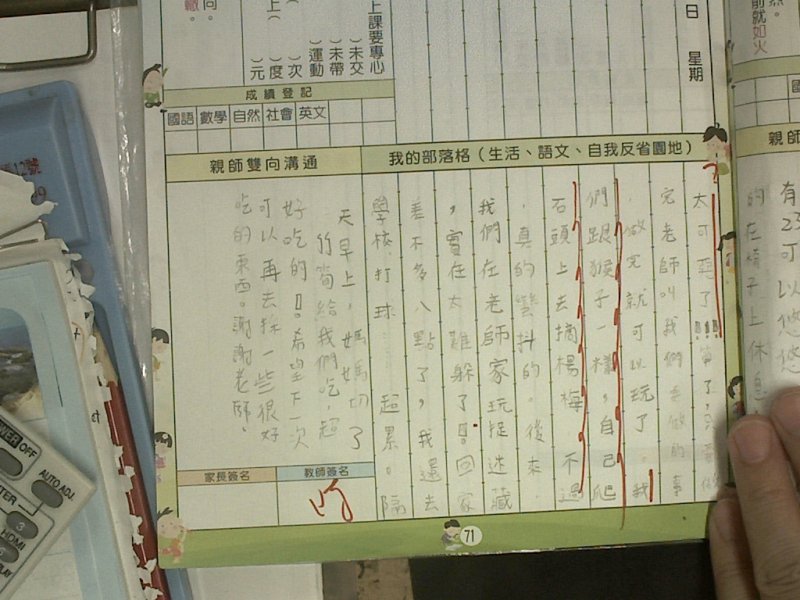 日 星期
上課要專心
( )未交
( )未帶
( )運動
( )次
( )度
上( )元
向。
轍。
然。
前就如火
成績登記
國語 數學 自然 社會 英文
親師雙向溝通
我的部落格（生活、語文、自我反省園地）
太可惡了!!!算了,只要做
完老師叫我們要做的事
,做完就可以玩了。我
們跟猴子一樣,自己爬
石頭上去摘楊梅 不過
,真的蠻抖的。後來,
我們在老師家玩捉迷藏
,實在太難躲了!!回家
差不多八點了,我還去
學校打球…超累。隔
天早上,媽媽切了
竹筍給我們吃,超
好吃的!!。希望下一次
可以再去採一些很好
吃的東西。謝謝老師。
家長簽名
教師簽名
71
親師
有
23
可
以
悠
悠
的在椅子上休息
12號
POWER OFF
AUTO ADJ.
HDMI